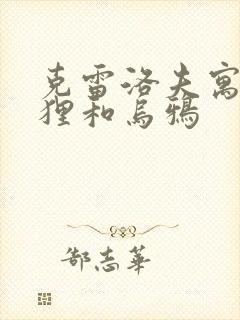 克雷洛夫寓
狸和乌鸦
郜志华